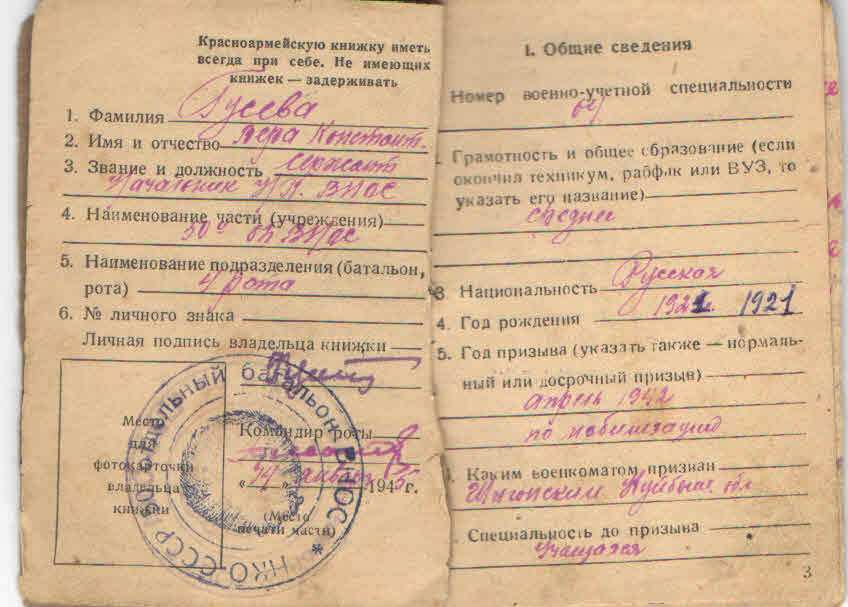 Красноармейскую книжку иметь
всегда при себе. Не имеющих
книжек — задерживать
1. Фамилия Гусева
2. Имя и отчество Вера Констант.
3. Звание и должность сержант
Начальник ВНОС
4. Наименование части (учреждения)
ВНОС
5. Наименование подразделения (батальон,
рота) 4 рота
6. № личного знака
Личная подпись владельца книжки
Место
для
фотокарточки
владельца
книжки
Командир роты
января 1945 г.
(Место
печати части)
НКО СССР батальон ВНОС *
I. Общие сведения
Номер военно-учетной специальности
Грамотность и общее образование (если
окончил техникум, рабфак или ВУЗ, то
указать его название)
среднее
3. Национальность Русская
4. Год рождения 1921 1921
5. Год призыва (указать также — нормаль-
ный или досрочный призыв)
апрель 1942
по мобилизации
Каким военкоматом призван
Куйбыш. обл
Специальность до призыва
Учащаяся
3